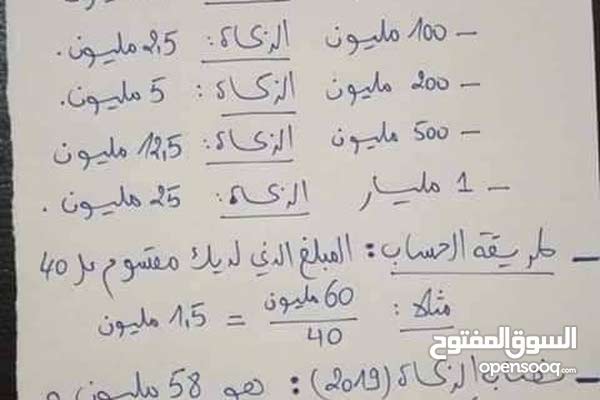 – 100 مليون الزكاة: 2,5 مليون.
– 200 مليون الزكاة: 5 مليون.
– 500 مليون الزكاة: 12,5 مليون
– 1 مليار الزكاة: 25 مليون.
– طريقة الحساب: المبلغ الذي لديك مقسوم على 40
مثلا: 60 مليون / 40 = 1,5 مليون
– نصاب الزكاة (2019): هو 58 مليون و
السوق المفتوح
opensooq.com